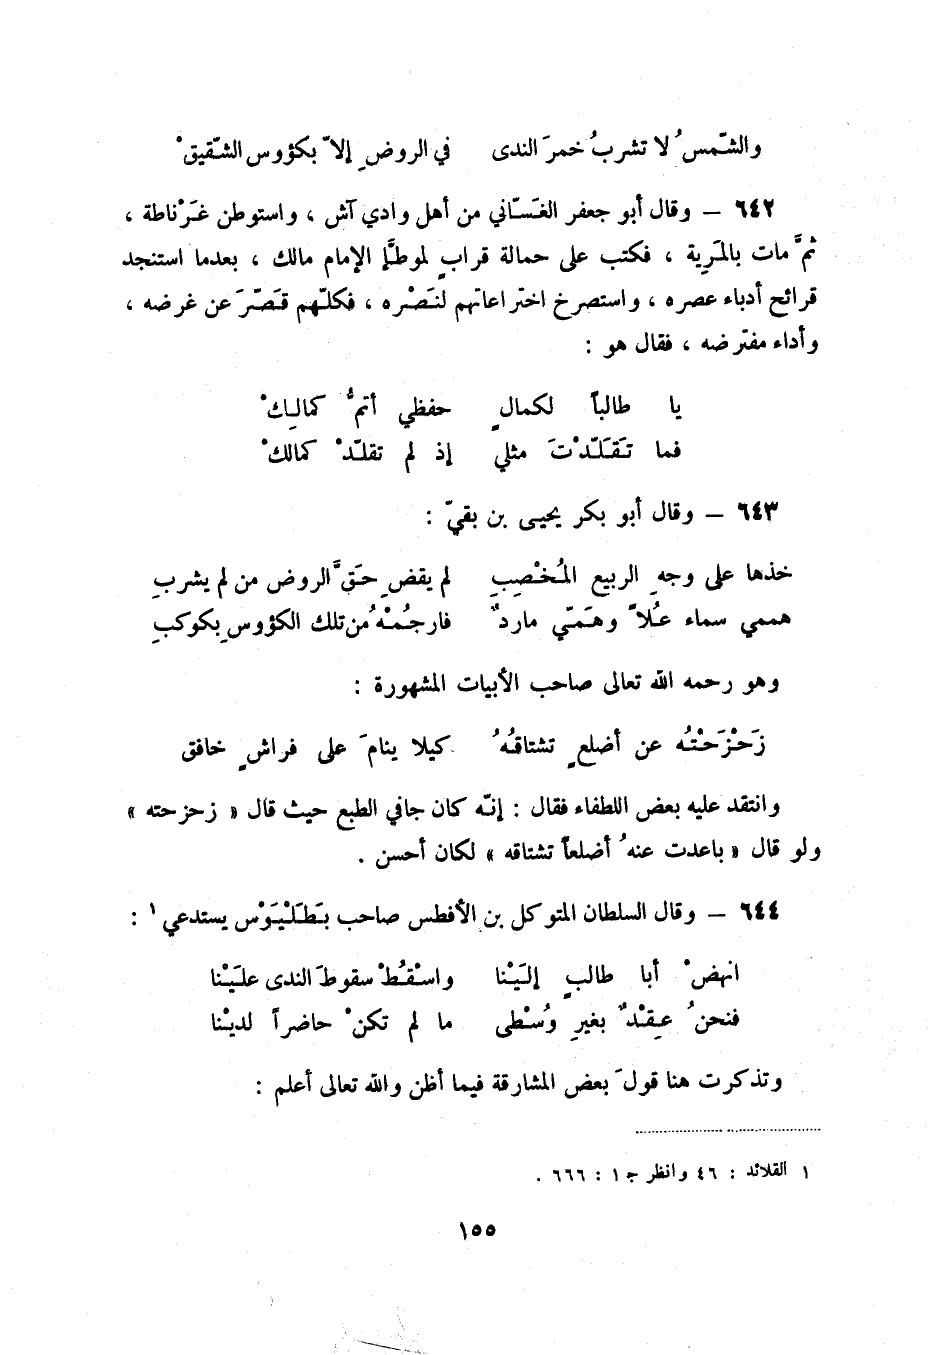 والشّمسُ لا تشربُ خمرَ الندى في الروضِ إلاّ بكؤوس الشّقيقْ
٦٤٢ – وقال أبو جعفر الغَسّاني من أهل وادي آش ، واستوطن غَرْناطة ،
ثمَّ مات بالمَرِية ، فكتب على حمالة قرابٍ لموطَّإ الإمام مالك ، بعدما استنجد
قرائح أدباء عصره ، واستصرخ اختراعاتهم لنَصْره ، فكلّهم قَصّرَ عن غرضه ،
وأداء مفترضه ، فقال هو :
يا طالباً لكمالٍ حفظي أتمُّ كمالِكْ
فما تَقَلّدْتَ مثلي إذ لم تقلّدْ كمالكْ
٦٤٣ – وقال أبو بكر يحيى بن بقيّ :
خذها على وجهِ الربيع المُخْصِبِ لم يقضِ حَقَّ الروض من لم يشربِ
هممي سماء عُلاً وهَمّي ماردٌ فارجُمْهُ من تلك الكؤوسِ بكوكبِ
وهو رحمه الله تعالى صاحب الأبيات المشهورة :
زَحْزَحْتُه عن أضلعٍ تشتاقُهُ كيلا ينامَ على فراشٍ خافق
وانتقد عليه بعض اللطفاء فقال : إنّه كان جافي الطبع حيث قال « زحزحته »
ولو قال « باعدت عنهُ أضلعاً تشتاقه » لكان أحسن .
٦٤٤ – وقال السلطان المتوكل بن الأفطس صاحب بَطَلْيَوْس يستدعي ١ :
انهضْ أبا طالبٍ إلَيْنا واسْقُطْ سقوطَ الندى علَيْنا
فنحنُ عِقْدٌ بغيرِ وُسْطى ما لم تكنْ حاضراً لديْنا
وتذكرت هنا قولَ بعض المشارقة فيما أظن والله تعالى أعلم :
١ القلائد : ٤٦ وانظر ج ١ : ٦٦٦ .
١٥٥